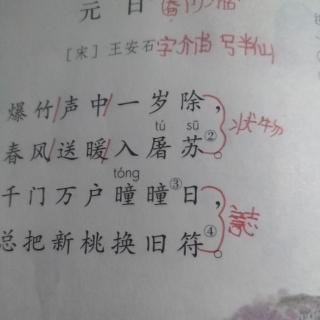 元日
[宋] 王安石 字介甫 号半山
爆竹/声中/一岁除， 状物
tú sū
春风/送暖/入屠苏②。
tóng
千门万户曈曈③日，
总把新桃换旧符④。